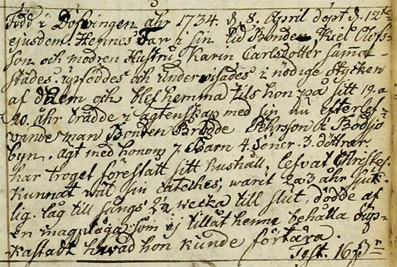 Född i Dösbingen åhr 1734. d. 8. April döpt d. 12te
ejusdem. Hennes Far i sin tid Bonden Kiel Olofs-
son och modren Hustru Karin Carlsdotter samma-
städes. upföddes och underwisades i nödige stycken
af dem och blef hemma tils hon på sitt 19. a
20. åhr trädde i ägtenskap med sin nu efterlef-
wande man Bonden Brodde Pehrsson i Bodsjö-
byn. ägt med honom 7. Barn 4. Söner. 3. döttrar.
har troget förestått sitt hushåll. Lefvat Christel.
kunnat wäl sin Cateches, warit 2 a 3 åhr sjuk-
lig. låg til sängs 2 1/2 wecka till slut. dödde af
en magplåga som ej tillät henne behålla
kastadt hwad hon kunde förtära.
Test. 16